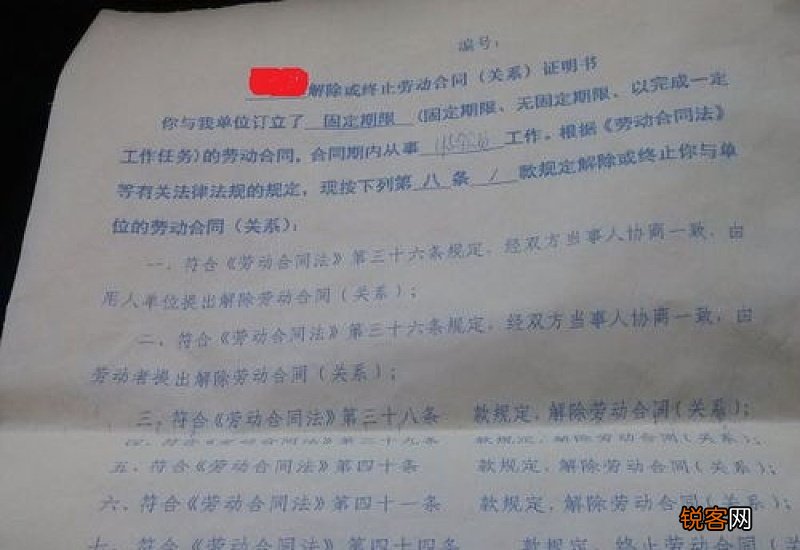 编号:
解除或终止劳动合同(关系)证明书
你与我单位订立了 固定期限 (固定期限、无固定期限、以完成一定
工作任务)的劳动合同,合同期内从事 工作。根据《劳动合同法》
等有关法律法规的规定,现按下列第 八 条 / 款规定解除或终止你与单
位的劳动合同(关系):
一、符合《劳动合同法》第三十六条规定,经双方当事人协商一致,由
用人单位提出解除劳动合同(关系);
二、符合《劳动合同法》第三十六条规定,经双方当事人协商一致,由
劳动者提出解除劳动合同(关系);
三、符合《劳动合同法》第三十八条 款规定,解除劳动合同(关系);
四、符合《劳动合同法》第三十九条 款规定,解除劳动合同(关系);
五、符合《劳动合同法》第四十条 款规定,解除劳动合同(关系);
六、符合《劳动合同法》第四十一条 款规定,解除劳动合同(关系);
七、符合《劳动合同法》第四十四条 款规定,终止劳动合同(关
锐客网